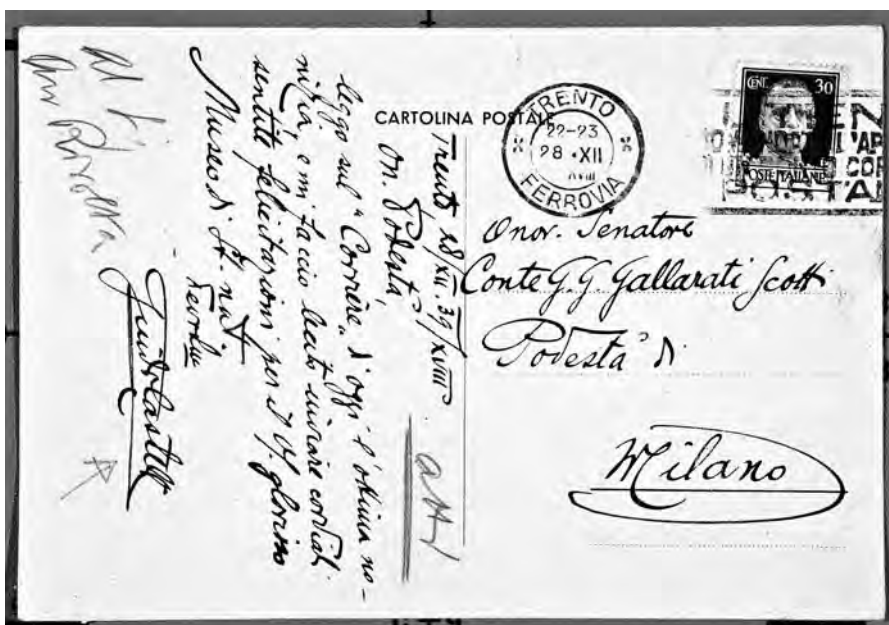 CARTOLINA POSTALE
TRENTO
22-23
28 • XII
XVIII
FERROVIA
CENT. 30
POSTE ITALIANE
Onor. Senatore
Conte G. G. Gallarati Scotti
Podestà di
Milano
Trento 28/XII.39/XVIII
On. Podestà,
leggo sul "Corriere" d'oggi l'ottima no-
tizia, e mi faccio lecito inviare cordiali
sentite felicitazioni per il glorioso
Museo di St. nat
atti